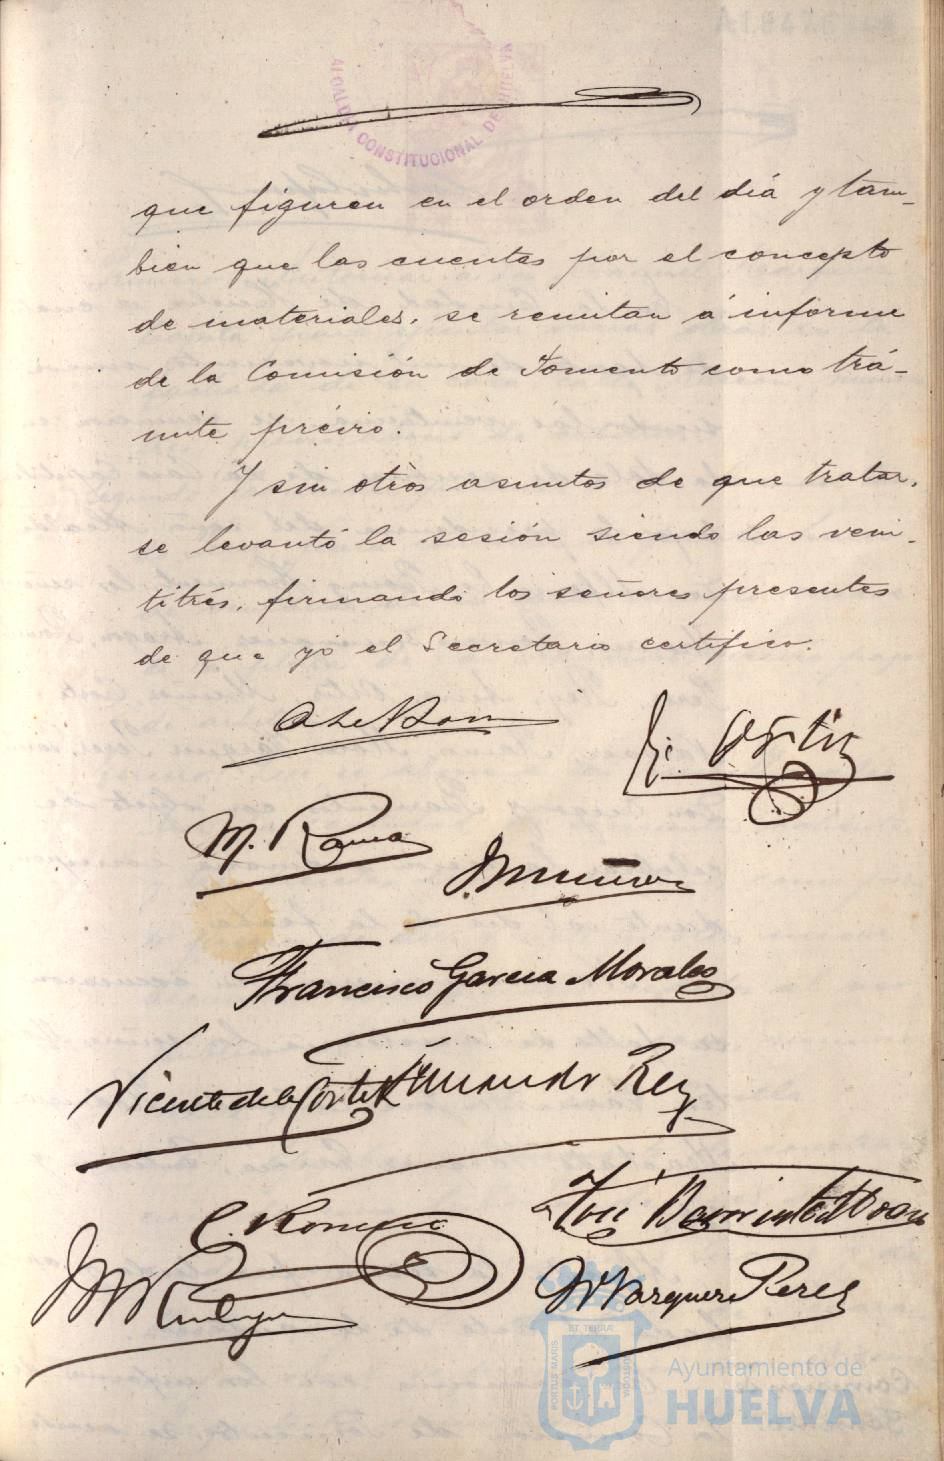 ALCALDIA CONSTITUCIONAL DE HUELVA
que figuren en el orden del dia y tam-
bien que las cuentas por el concepto
de materiales, se remitan á informe
de la Comisión de Fomento como trá-
mite prévio.
Y sin otros asuntos de que tratar,
se levantó la sesión siendo las vein-
titrés, firmando los señores presentes
de que yo el Secretario certifico.
M. Rama
Francisco Garcia Morales
Vicente de la Corte
Rey
C. Romero
José Barrientos
M Vazquez Perez
PORTUS MARIS ET TERRAE CUSTODIA
Ayuntamiento de
HUELVA